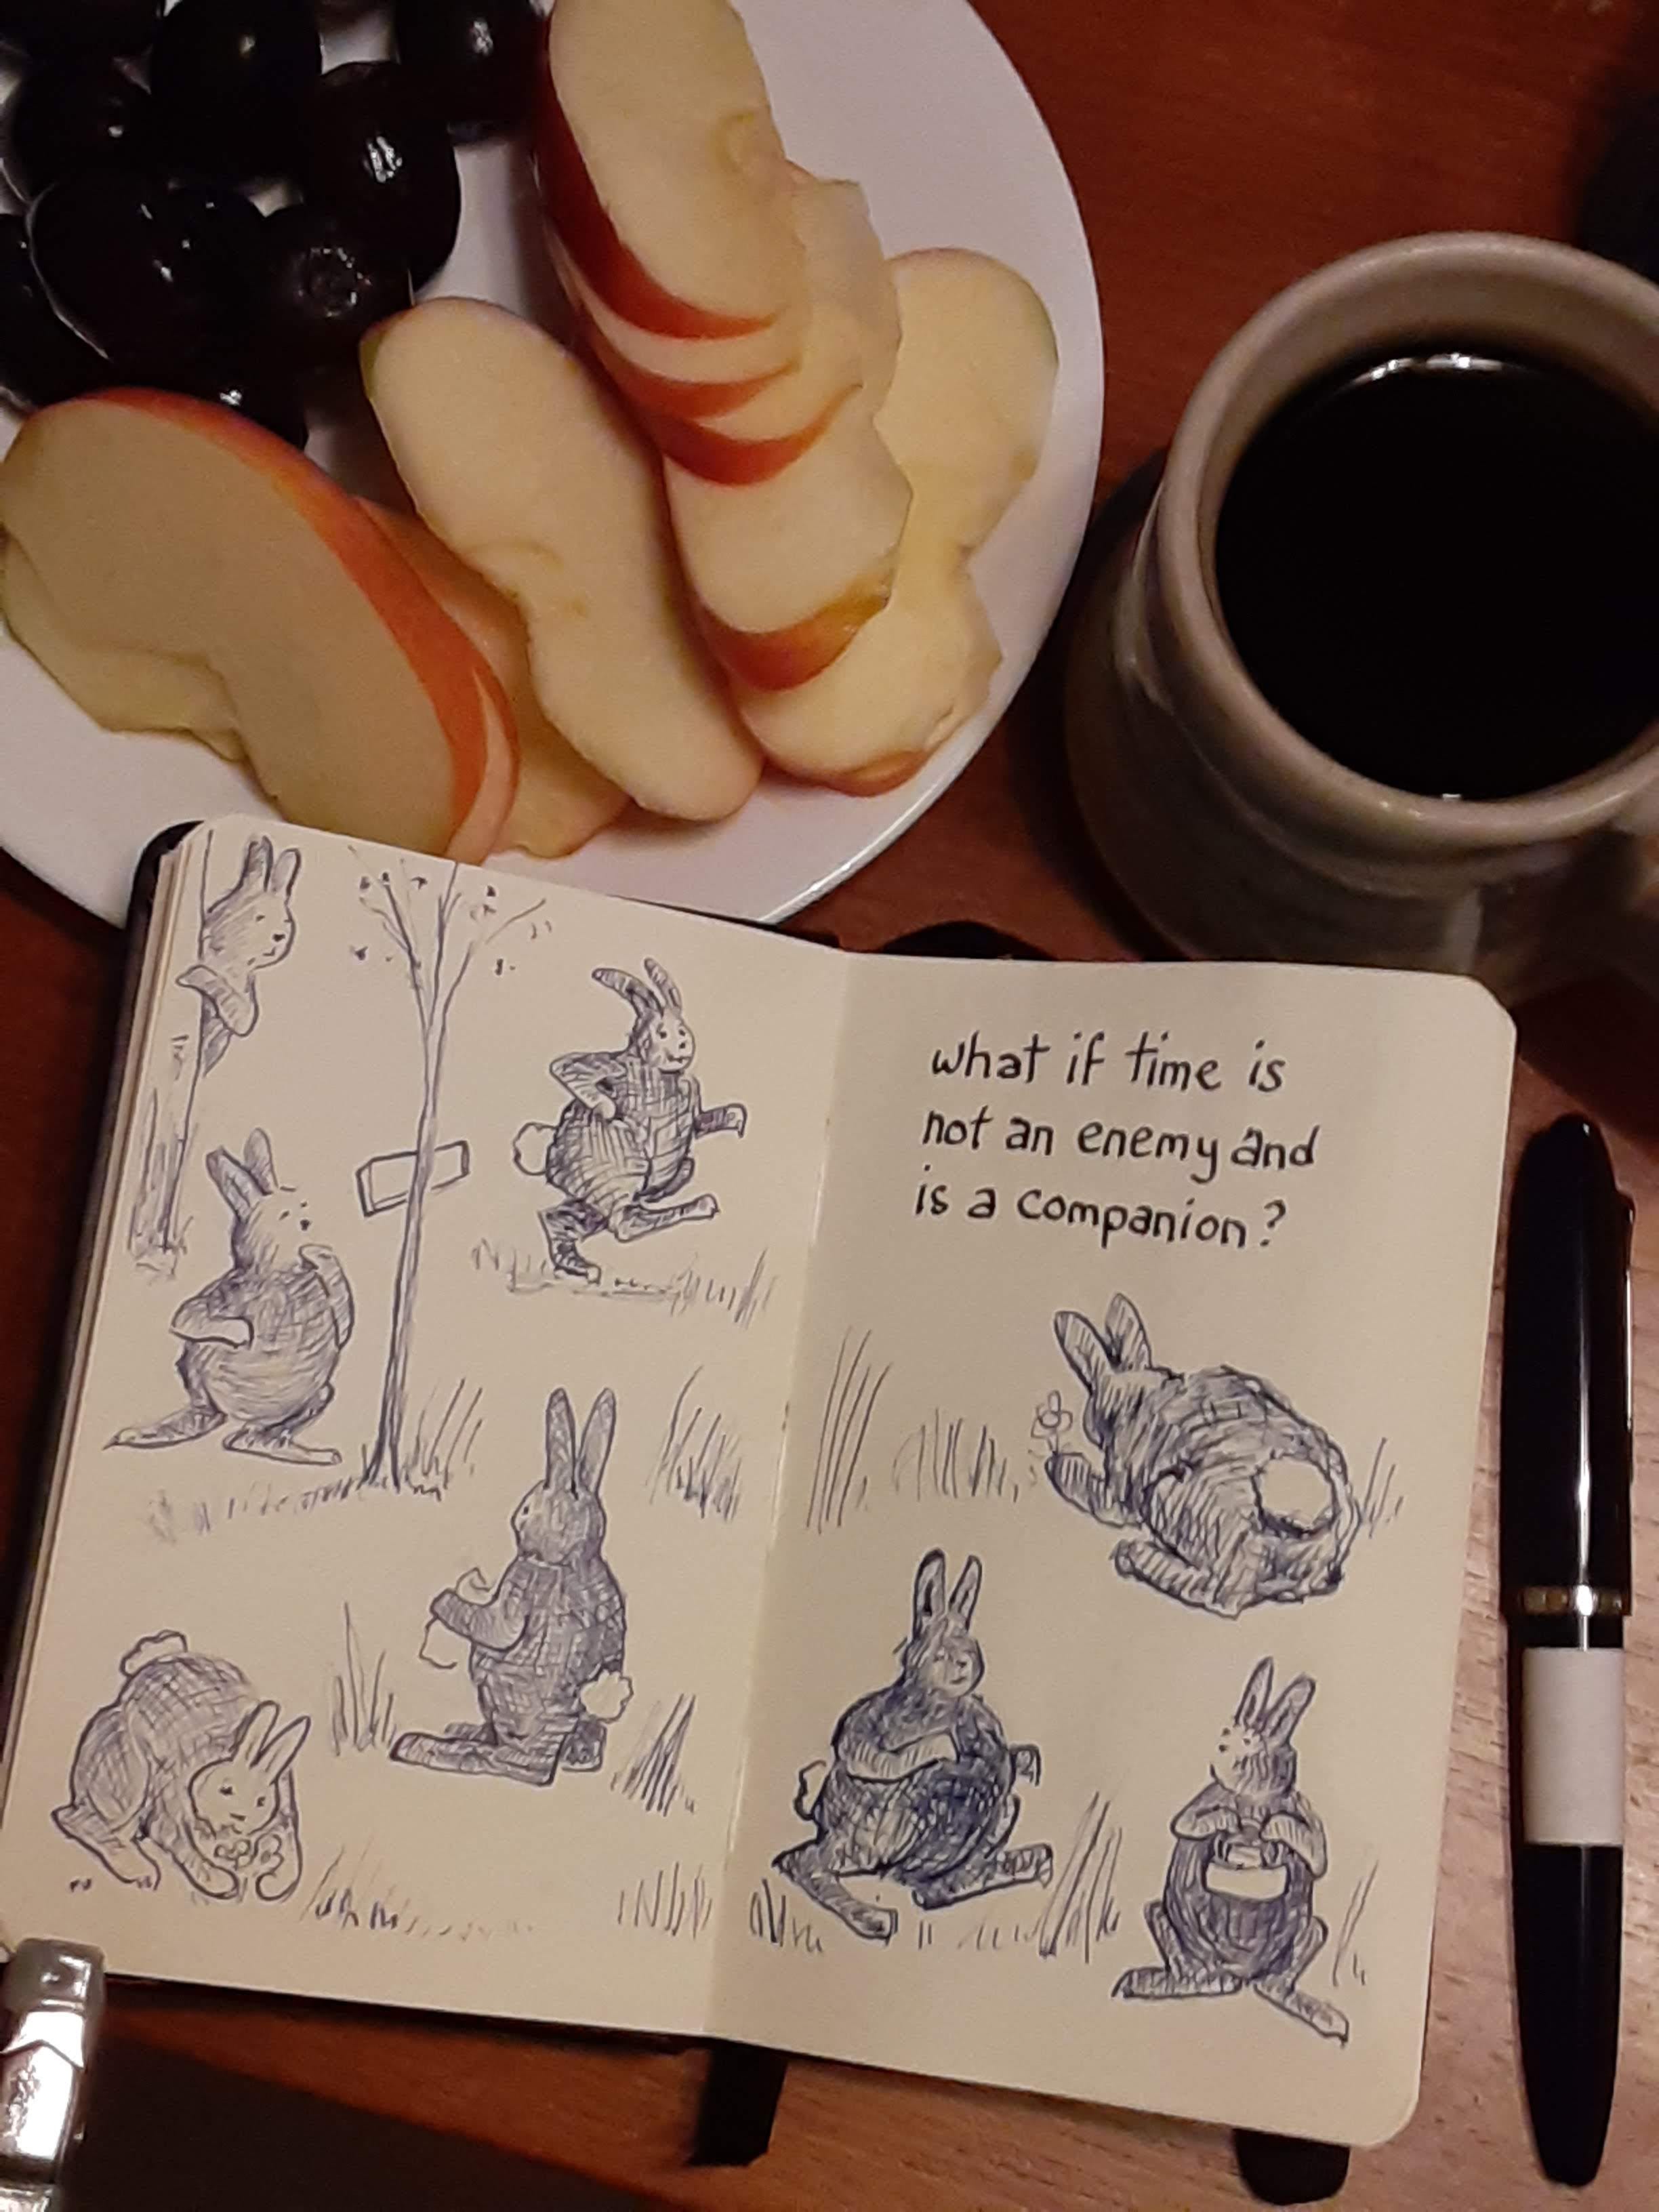 what if time is
not an enemy and
is a companion?